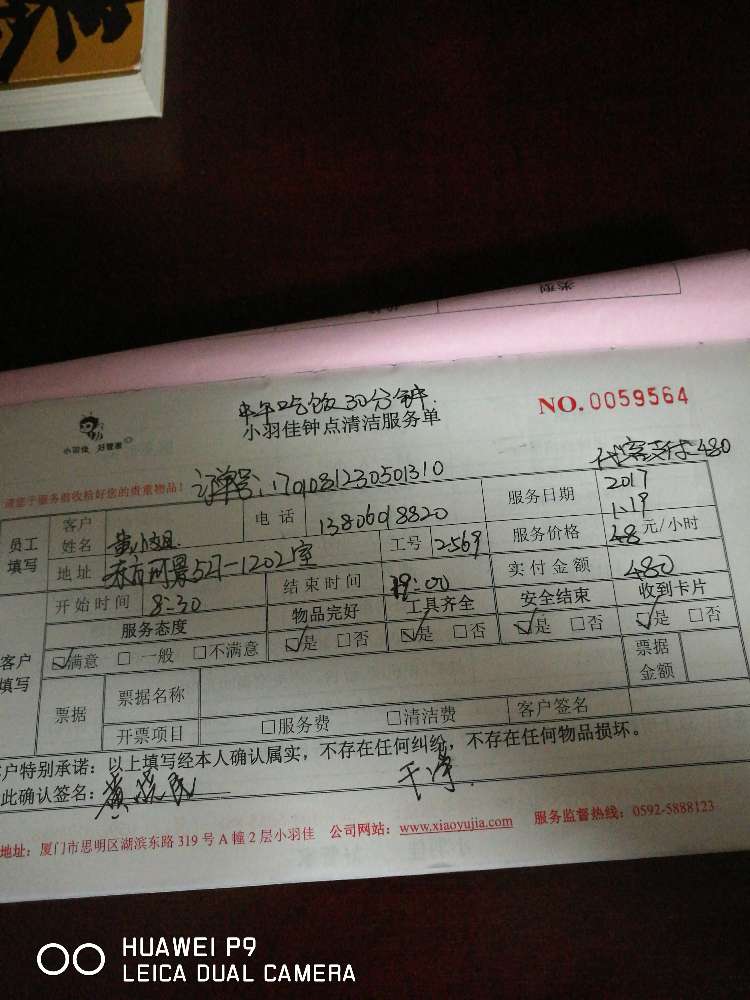 类型
中午吃饭30分钟.
小羽佳 好管家
小羽佳钟点清洁服务单
NO.0059564
请您于服务前收拾好您的贵重物品！
订单号:1701081230501310
代客支付480
员工填写 客户姓名 黄小姐 电话 13806018820 服务日期 2017 1.19
地址 东方丽景527-1202室 工号 2569 服务价格 48元/小时
开始时间 8:30 结束时间 19:00 实付金额 480
客户填写 服务态度 物品完好 工具齐全 安全结束 收到卡片
☑满意 □一般 □不满意 ☑是 □否 ☑是 □否 ☑是 □否 ☑是 □否
票据 票据名称 票据金额
开票项目 □服务费 □清洁费 客户签名
客户特别承诺：以上填写经本人确认属实，不存在任何纠纷，不存在任何物品损坏。
此确认签名： 干净
地址：厦门市思明区湖滨东路 319 号 A 幢 2 层小羽佳 公司网站：www.xiaoyujia.com 服务监督热线：0592-5888123
HUAWEI P9
LEICA DUAL CAMERA